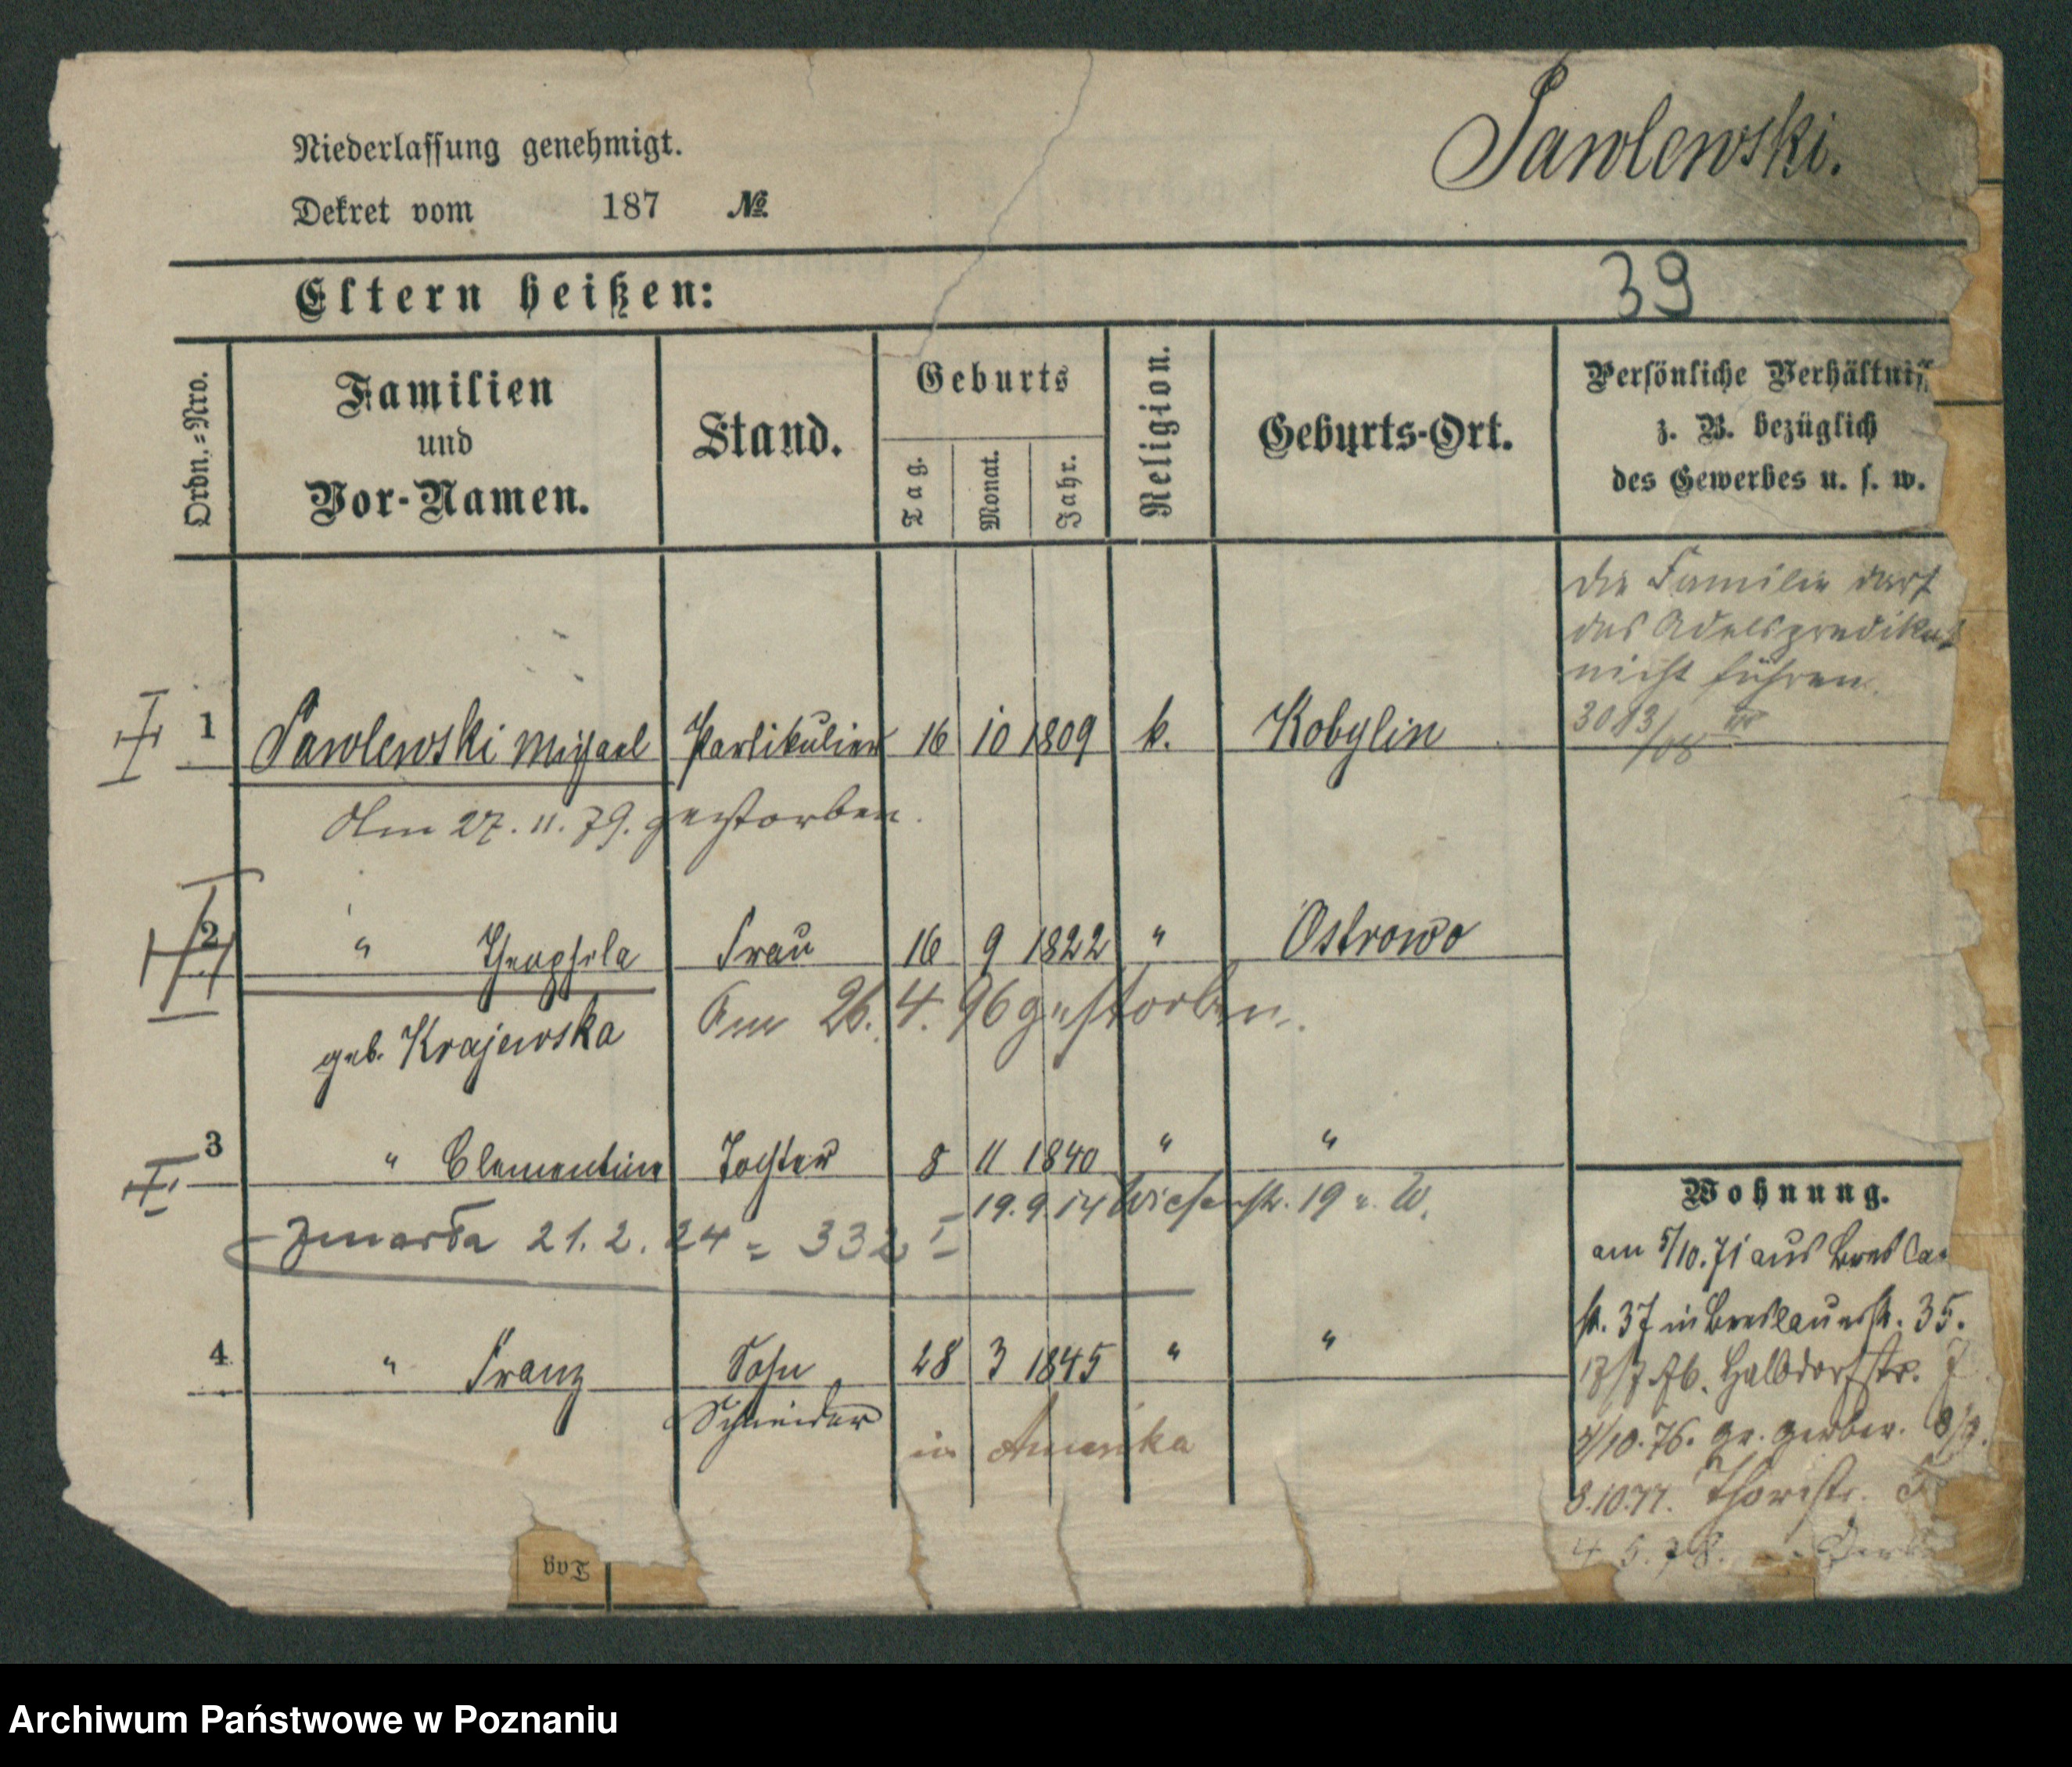 Niederlassung genehmigt.
Dekret vom 187 №
Pawlewski.
Eltern heißen:
39
Ordn.=Nro.
Familien
und
Vor-Namen.
Stand.
Geburts
Tag.
Monat.
Jahr.
Religion.
Geburts-Ort.
Persönliche Verhältniss
z. B. bezüglich
des Gewerbes u. s. w.
Die Familie darf
das Adelspredikat
nicht führen.
3013/08
1 Pawlewski Michael Partikulier 16 10 1809 k. Kobylin
Am 27. 11. 79. gestorben.
2 " Theophila Frau 16 9 1822 " Ostrowo
geb. Krajewska
Am 26. 4. 96 gestorben.
3 " Clementine Tochter 8 11 1840 " "
19.9.14 Wiesenstr. 19 b. W.
Zmarła 21. 2. 24 = 332 I
4 " Franz Sohn 28 3 1845 " "
Schneider
in Amerika
Wohnung.
am 5/10. 71 aus Breslau
str. 37 in Breslauerstr. 35.
13/7 76. Halbdorfstr. 7
4/10. 76. gr. Gerber. 8/9.
3.10.77. Thorstr.
4 5. 78.
Tag
Archiwum Państwowe w Poznaniu